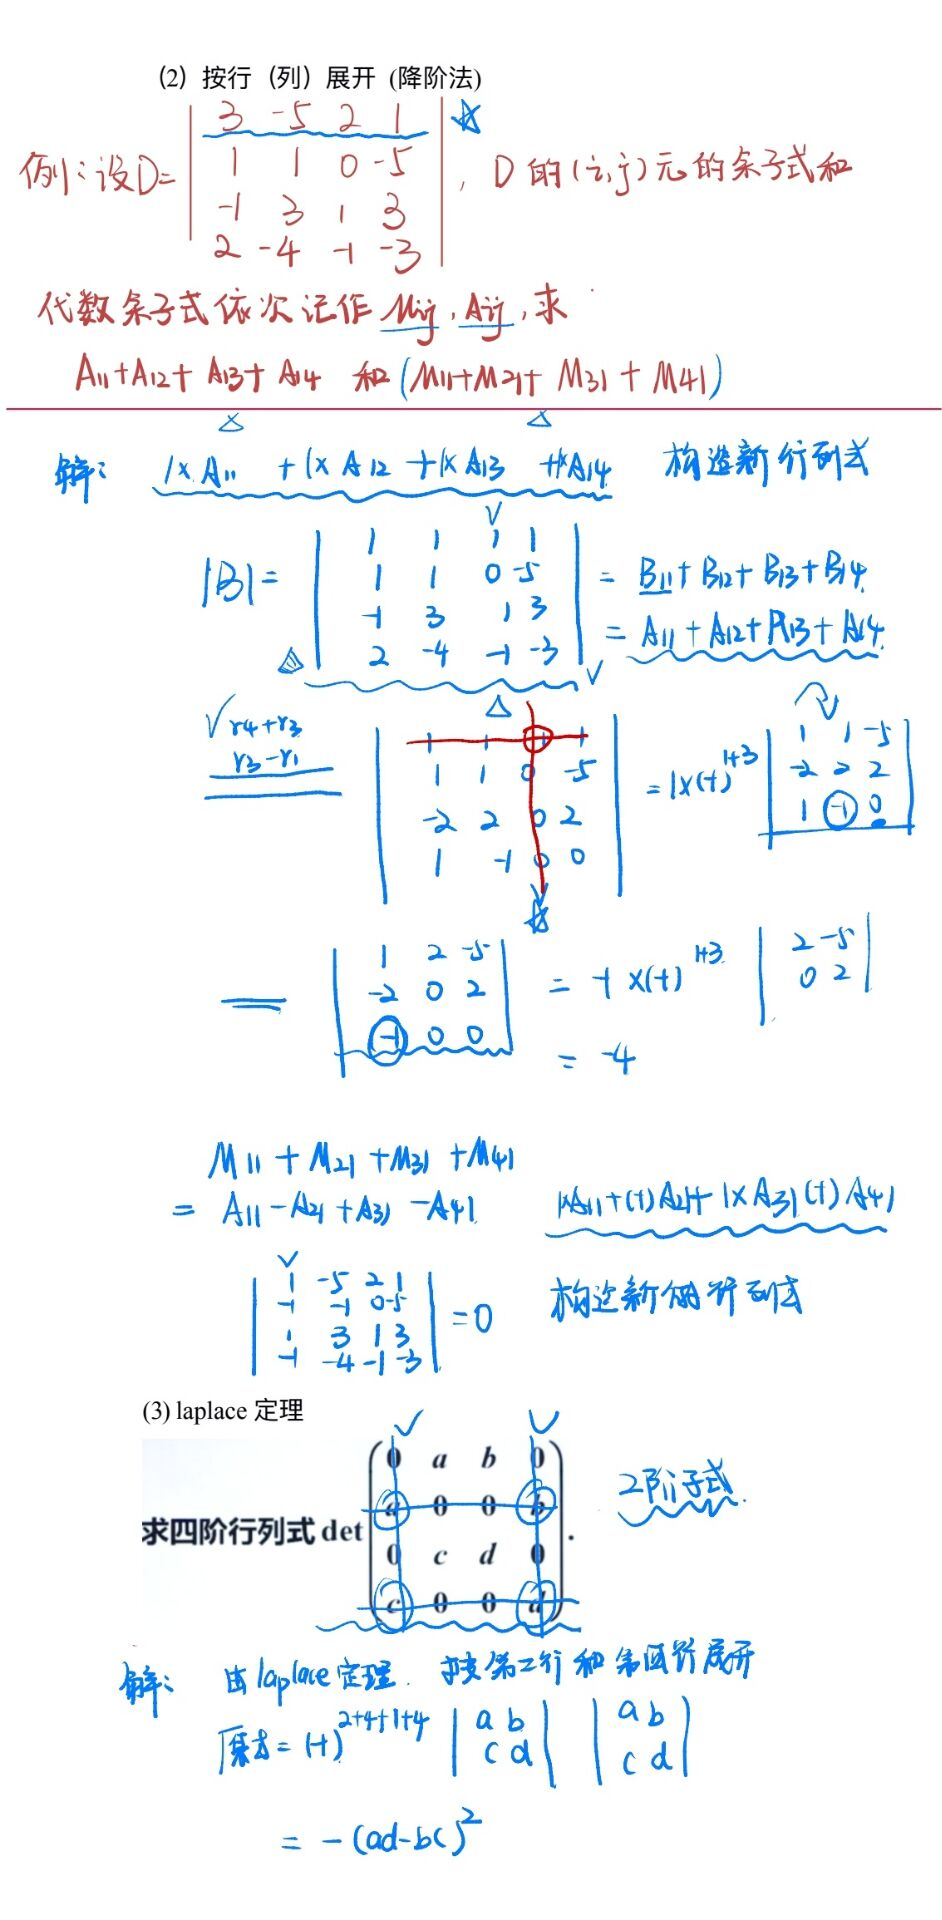 (2) 按行（列）展开 (降阶法)
3 -5 2 1
例1: 设D= 1 1 0 -5 , D的(i,j)元的余子式和
-1 3 1 3
2 -4 -1 -3
代数余子式依次记作 Mij, Aij, 求
A11+A12+A13+A14 和 (M11+M21+M31+M41)
解: 1×A11 +1×A12 +1×A13 +1×A14 构造新行列式
1 1 1 1
|B|= 1 1 0 -5 = B11+B12+B13+B14
-1 3 1 3 = A11+A12+A13+A14
2 -4 -1 -3
r4+r3
r3-r1
1 1 1 1
1 1 0 -5
-2 2 0 2
1 -1 0 0
=1×(-1)^{1+3}
1 1 -5
-2 2 2
1 -1 0
1 2 -5
-2 0 2
-1 0 0
= -1×(-1)^{1+3}
2 -5
0 2
= -4
M11+M21+M31+M41
= A11-A21+A31-A41 1×A11+(-1)A21+1×A31(-1)A41
1 -5 2 1
-1 -1 0 -5
1 3 1 3
-1 -4 -1 -3
=0 构造新的行列式
(3) laplace 定理
0 a b 0
a 0 0 b
求四阶行列式 det .
0 c d 0
c 0 0 d
2阶子式.
解: 由laplace定理. 按第二行和第四行展开
原式=(-1)^{2+4+1+4} |a b| |a b|
|c d| |c d|
= -(ad-bc)^2